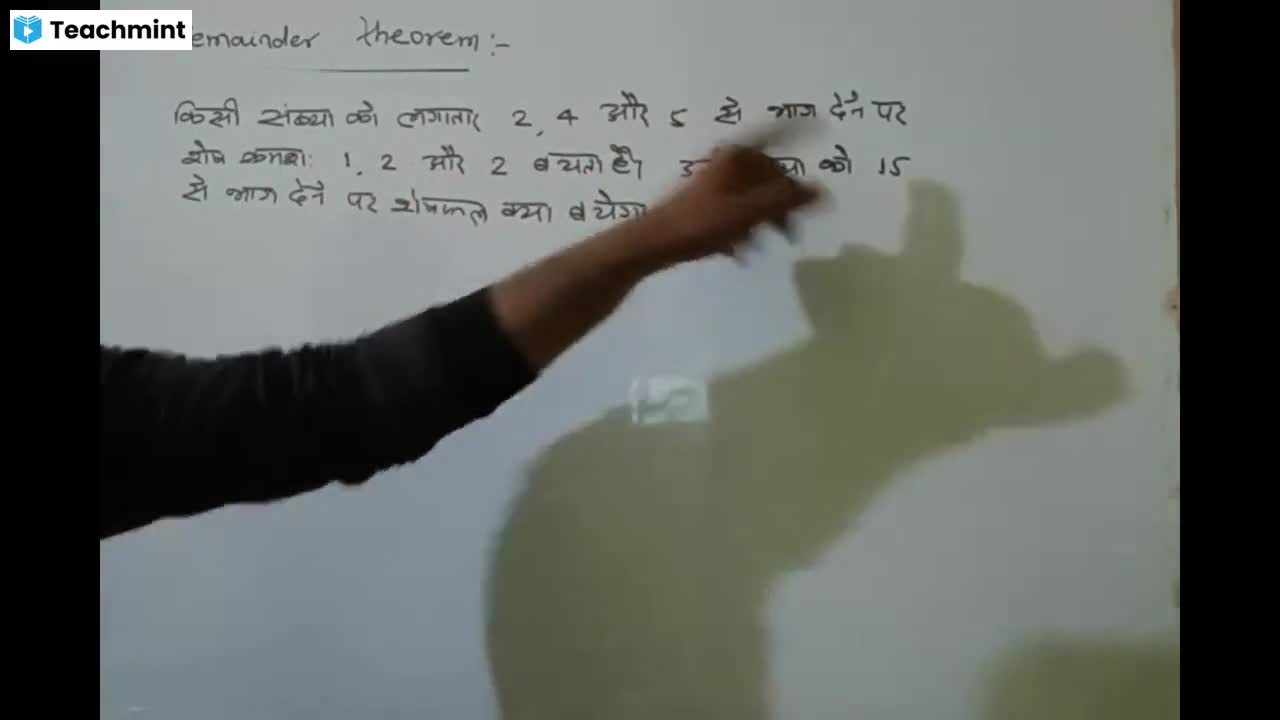 Teachmint
emainder theorem:-
किसी संख्या को लगातार 2, 4 और 5 से भाग देने पर
शेष क्रमशः 1, 2 और 2 बचता है। को 15
से भाग देने पर शेषफल क्या बचेगा